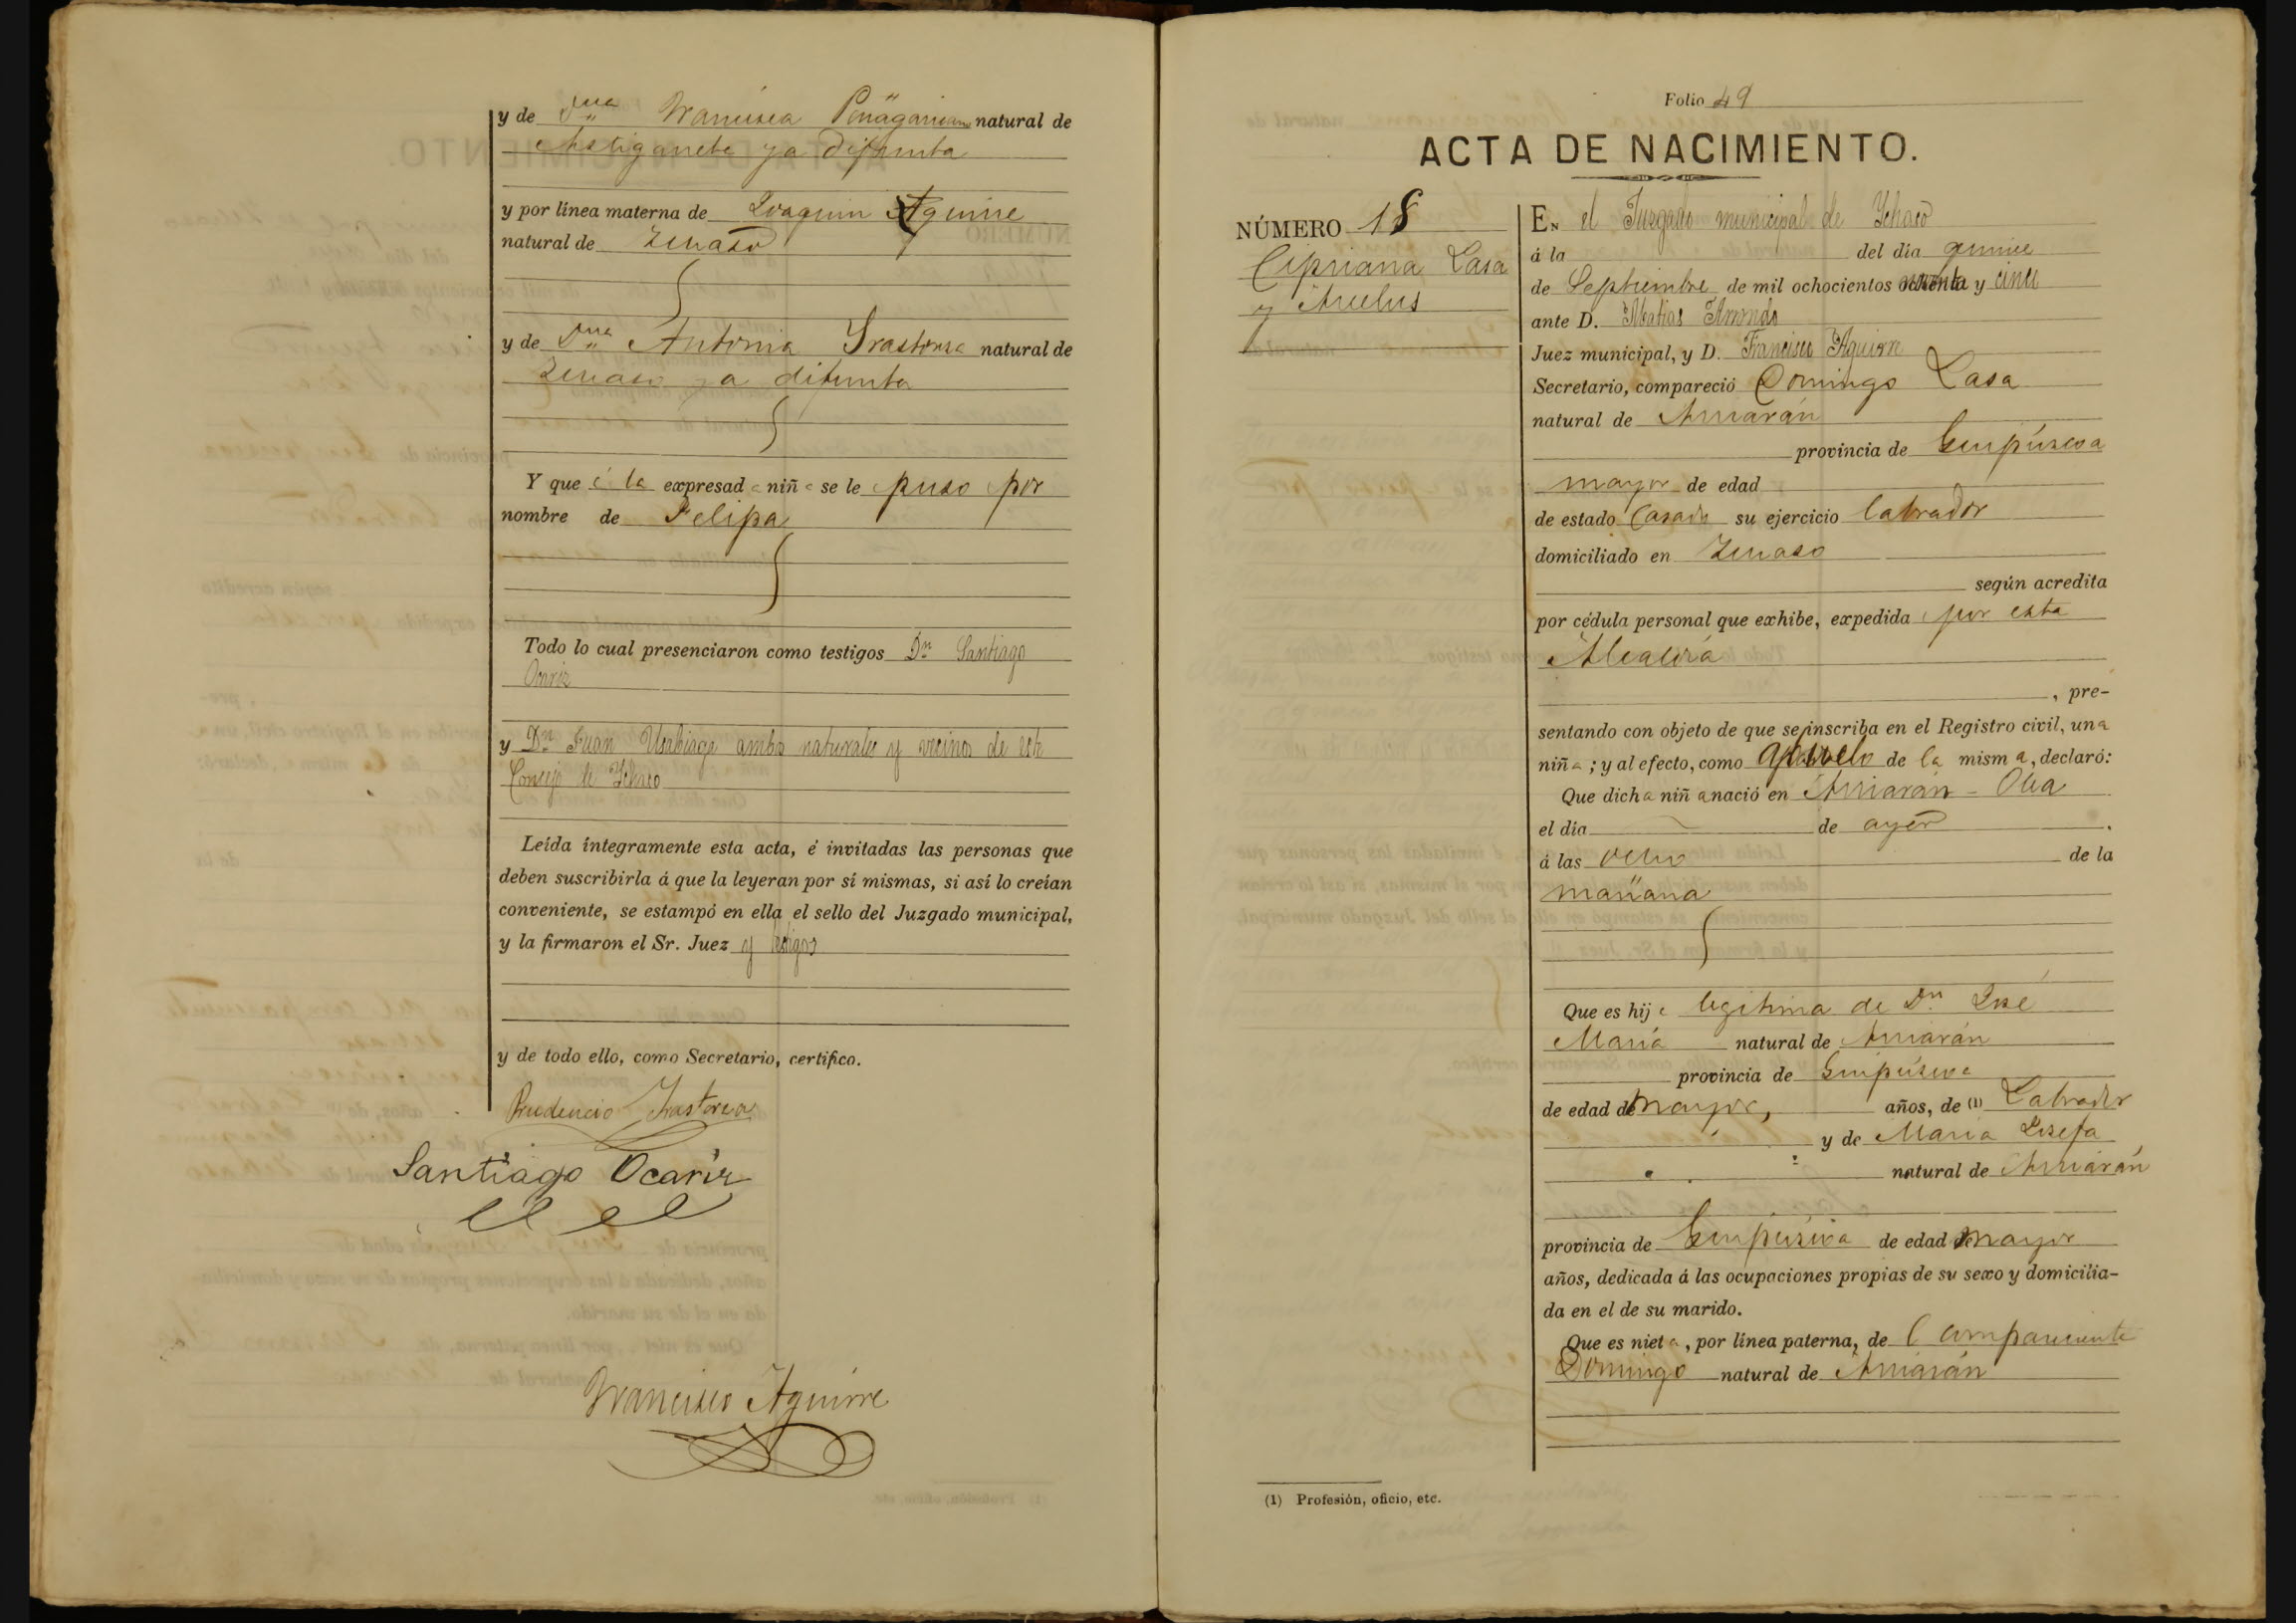 y de Dña Francisca Peñagaricano natural de
Astigarreta ya difunta
y por línea materna de Joaquin Aguirre
natural de Zerain
y de Dña Antonia Irastorza natural de
ya difunta
Y que á la expresada niña se le puso por
nombre de Felipa
Todo lo cual presenciaron como testigos Dn Santiago
Ocariz
y Dn Juan Usabiaga ambos naturales y vecinos de este
Concejo de
Leída íntegramente esta acta, é invitadas las personas que
deben suscribirla á que la leyeran por sí mismas, si así lo creían
conveniente, se estampó en ella el sello del Juzgado municipal,
y la firmaron el Sr. Juez y testigos
y de todo ello, como Secretario, certifico.
Prudencio Irastorza
Santiago Ocariz
Francisco Aguirre
Folio 49
ACTA DE NACIMIENTO.
NÚMERO 18
Cipriana Lasa
y
En el Juzgado municipal de
á la del día quince
de Septiembre de mil ochocientos noventa y cinco
ante D. Matias Arrondo
Juez municipal, y D. Francisco Aguirre
Secretario, compareció Domingo Lasa
natural de
provincia de Guipúzcoa
mayor de edad
de estado Casado su ejercicio labrador
domiciliado en
según acredita
por cédula personal que exhibe, expedida por esta
Alcaldía
, pre-
sentando con objeto de que se inscriba en el Registro civil, una
niña; y al efecto, como abuelo de la misma, declaró:
Que dicha niña nació en
el día de ayer .
á las ocho de la
mañana
Que es hija legitima de Dn José
María natural de
provincia de Guipúzcoa
de edad de mayor, años, de (1) Labrador
y de María Josefa
natural de
provincia de Guipúzcoa de edad de mayor
años, dedicada á las ocupaciones propias de su sexo y domicilia-
da en el de su marido.
Que es nieta, por línea paterna, de l compareciente
Domingo natural de
(1) Profesión, oficio, etc.